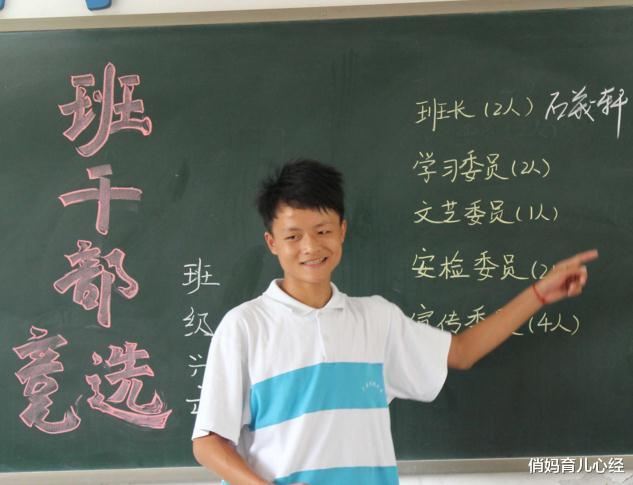 班干部竞选
班级兴亡
班长(2人) 石义轩
学习委员(2人)
文艺委员(1人)
安检委员(2
宣传委员(4人)
俏妈育儿心经